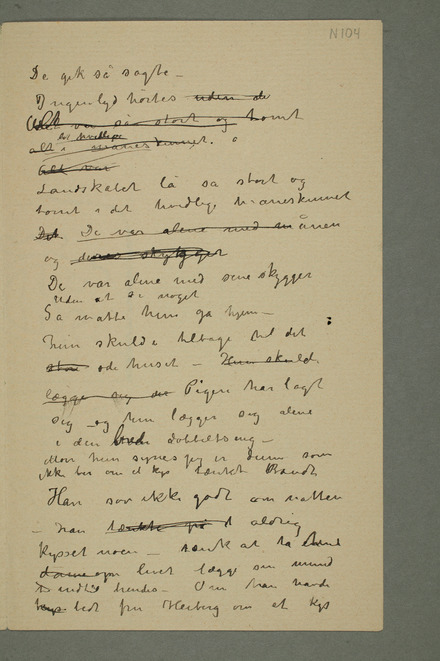 N 104
De gik så sagte –
Ingen lyd hørtes uden de
Alt var så stort og tomt
alt i måneskinnet.
Alt var
Landskabet lå så stort og
tomt i det hvidlige måneskinnet
Det De var alene med månen
og deres skygger
De var alene med sine skygger
Uden at se noget
Så måtte hun gå hjem –
hun skulde tilbage til det
store øde huset – Hun skuld
lægge sig der Pigen har lagt
sig – og hun lægger sig alene
i den bred dobbeltseng –
Mon hun synes jeg er dum som
ikke ber om et kys tænkte Brandt
Han sov ikke godt om natten
– han tænkte på d aldrig
kysset noen – tænk at ta
livet lægge sin mund
indtil hendes – Om han havde
bedt fru Heiberg om et kys